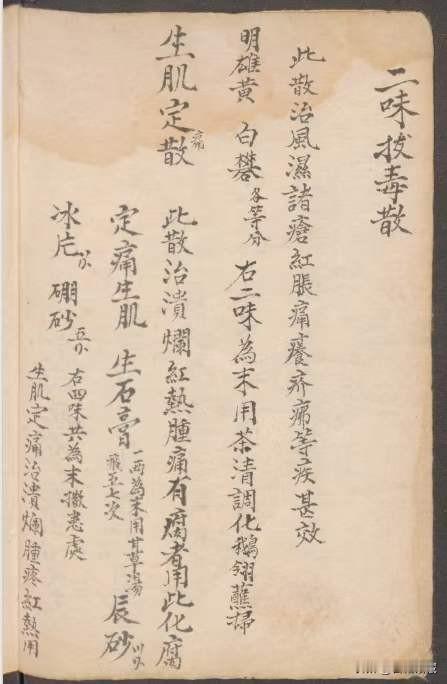 二味拔毒散
此散治風濕諸瘡紅脹痛癢疥疿等疾甚效
明雄黃 白礬 各等分 右二味為末用茶清調化鵝翎蘸掃
生肌定痛散 此散治潰爛紅熱腫痛有腐者用此化腐
定痛生肌 生石膏 一兩為末用甘草湯飛五七次 辰砂
冰片 硼砂 五分 右四味共為末撒患處
生肌定痛治潰爛腫疼紅熱用